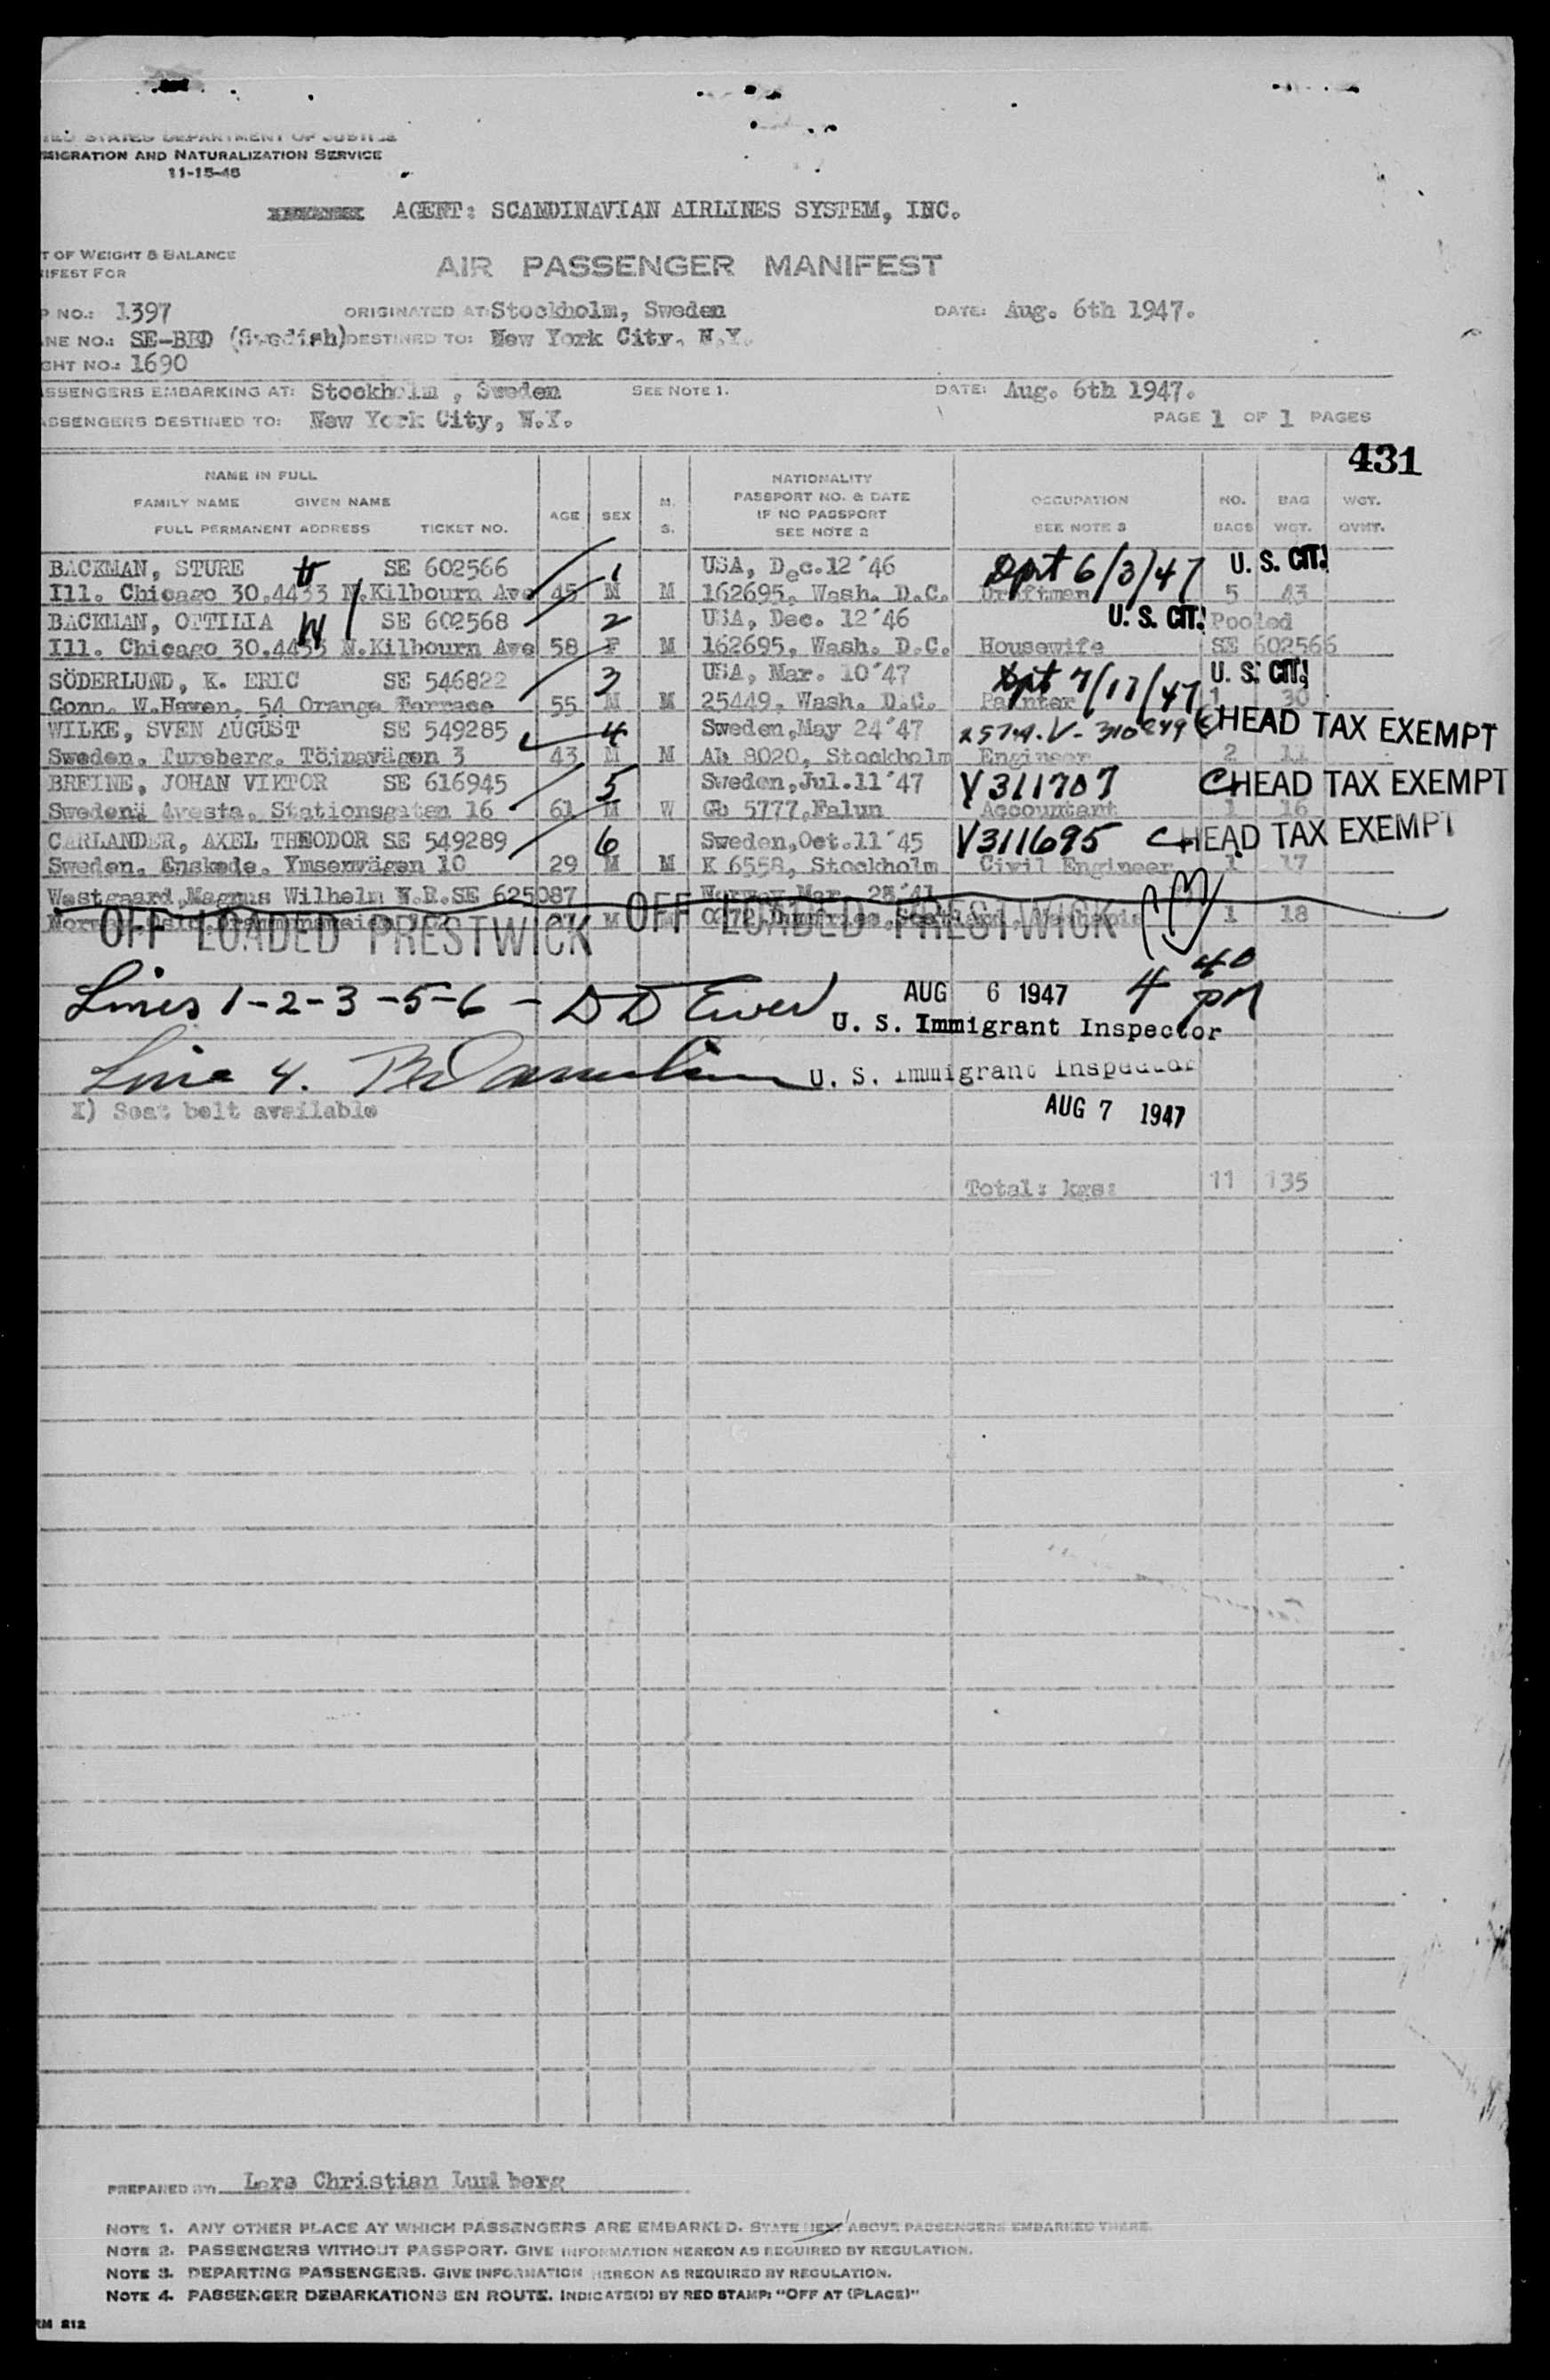 UNITED STATES DEPARTMENT OF JUSTICE
MIGRATION AND NATURALIZATION SERVICE
11-15-46
AGENT: SCANDINAVIAN AIRLINES SYSTEM, INC.
T OF WEIGHT & BALANCE
IFEST FOR
AIR PASSENGER MANIFEST
P NO.: 1397 ORIGINATED AT: Stockholm, Sweden DATE: Aug. 6th 1947.
NE NO.: SE-BBD (Swedish) DESTINED TO: New York City, N.Y.
GHT NO.: 1690
SSENGERS EMBARKING AT: Stockholm , Sweden SEE NOTE 1. DATE: Aug. 6th 1947.
SSENGERS DESTINED TO: New York City, N.Y. PAGE 1 OF 1 PAGES
431
NAME IN FULL
FAMILY NAME GIVEN NAME
FULL PERMANENT ADDRESS TICKET NO.
AGE SEX M. S.
NATIONALITY
PASSPORT NO. & DATE
IF NO PASSPORT
SEE NOTE 2
OCCUPATION
SEE NOTE 3
NO. BAGS BAG WGT. WGT. OVWT.
BACKMAN, STURE SE 602566 1 USA, Dec.12 '46 Dpt 6/3/47 U. S. CIT.
Ill. Chicago 30.4433 N.Kilbourn Ave 45 M M 162695, Wash. D.C. Draftman 5 43
BACKMAN, OTTILIA W SE 602568 2 USA, Dec. 12'46 U. S. CIT. Pooled
Ill. Chicago 30.4433 N.Kilbourn Ave 58 F M 162695, Wash. D.C. Housewife SE 602566
SÖDERLUND, K. ERIC SE 546822 3 USA, Mar. 10'47 Dpt 7/17/47 U. S. CIT.
Conn. W.Haven, 54 Orange Terrace 55 M M 25449, Wash. D.C. Painter 1 30
WILKE, SVEN AUGUST SE 549285 4 Sweden,May 24'47 HEAD TAX EXEMPT
Sweden. Tureberg. Töjnavägen 3 43 M M Ab 8020, Stockholm Engineer 2 11
BREINE, JOHAN VIKTOR SE 616945 5 Sweden,Jul.11'47 V311707 HEAD TAX EXEMPT
Swedenä Avesta. Stationsgatan 16 61 M W Gb 5777,Falun Accountant 1 16
CARLANDER, AXEL THEODOR SE 549289 6 Sweden,Oct.11'45 V311695 HEAD TAX EXEMPT
Sweden. Enskede. Ymsenvägen 10 29 M M K 6558, Stockholm Civil Engineer 1 17
Westgaard,Magnus Wilhelm N.R.SE 625087 Norway Mar. 28'41
M 1 18
OFF LOADED PRESTWICK OFF LOADED PRESTWICK
Lines 1-2-3-5-6 - AUG 6 1947 4 40 PM
U. S. Immigrant Inspector
Line 4. U. S. Immigrant Inspector
X) Seat belt available AUG 7 1947
Total: kgs: 11 135
PREPARED BY: Lars Christian Lundberg
NOTE 1. ANY OTHER PLACE AT WHICH PASSENGERS ARE EMBARKED. STATE NEXT ABOVE PASSENGERS EMBARKED THERE.
NOTE 2. PASSENGERS WITHOUT PASSPORT. GIVE INFORMATION HEREON AS REQUIRED BY REGULATION.
NOTE 3. DEPARTING PASSENGERS. GIVE INFORMATION HEREON AS REQUIRED BY REGULATION.
NOTE 4. PASSENGER DEBARKATIONS EN ROUTE. INDICATE(D) BY RED STAMP: "OFF AT (PLACE)"
RM 212